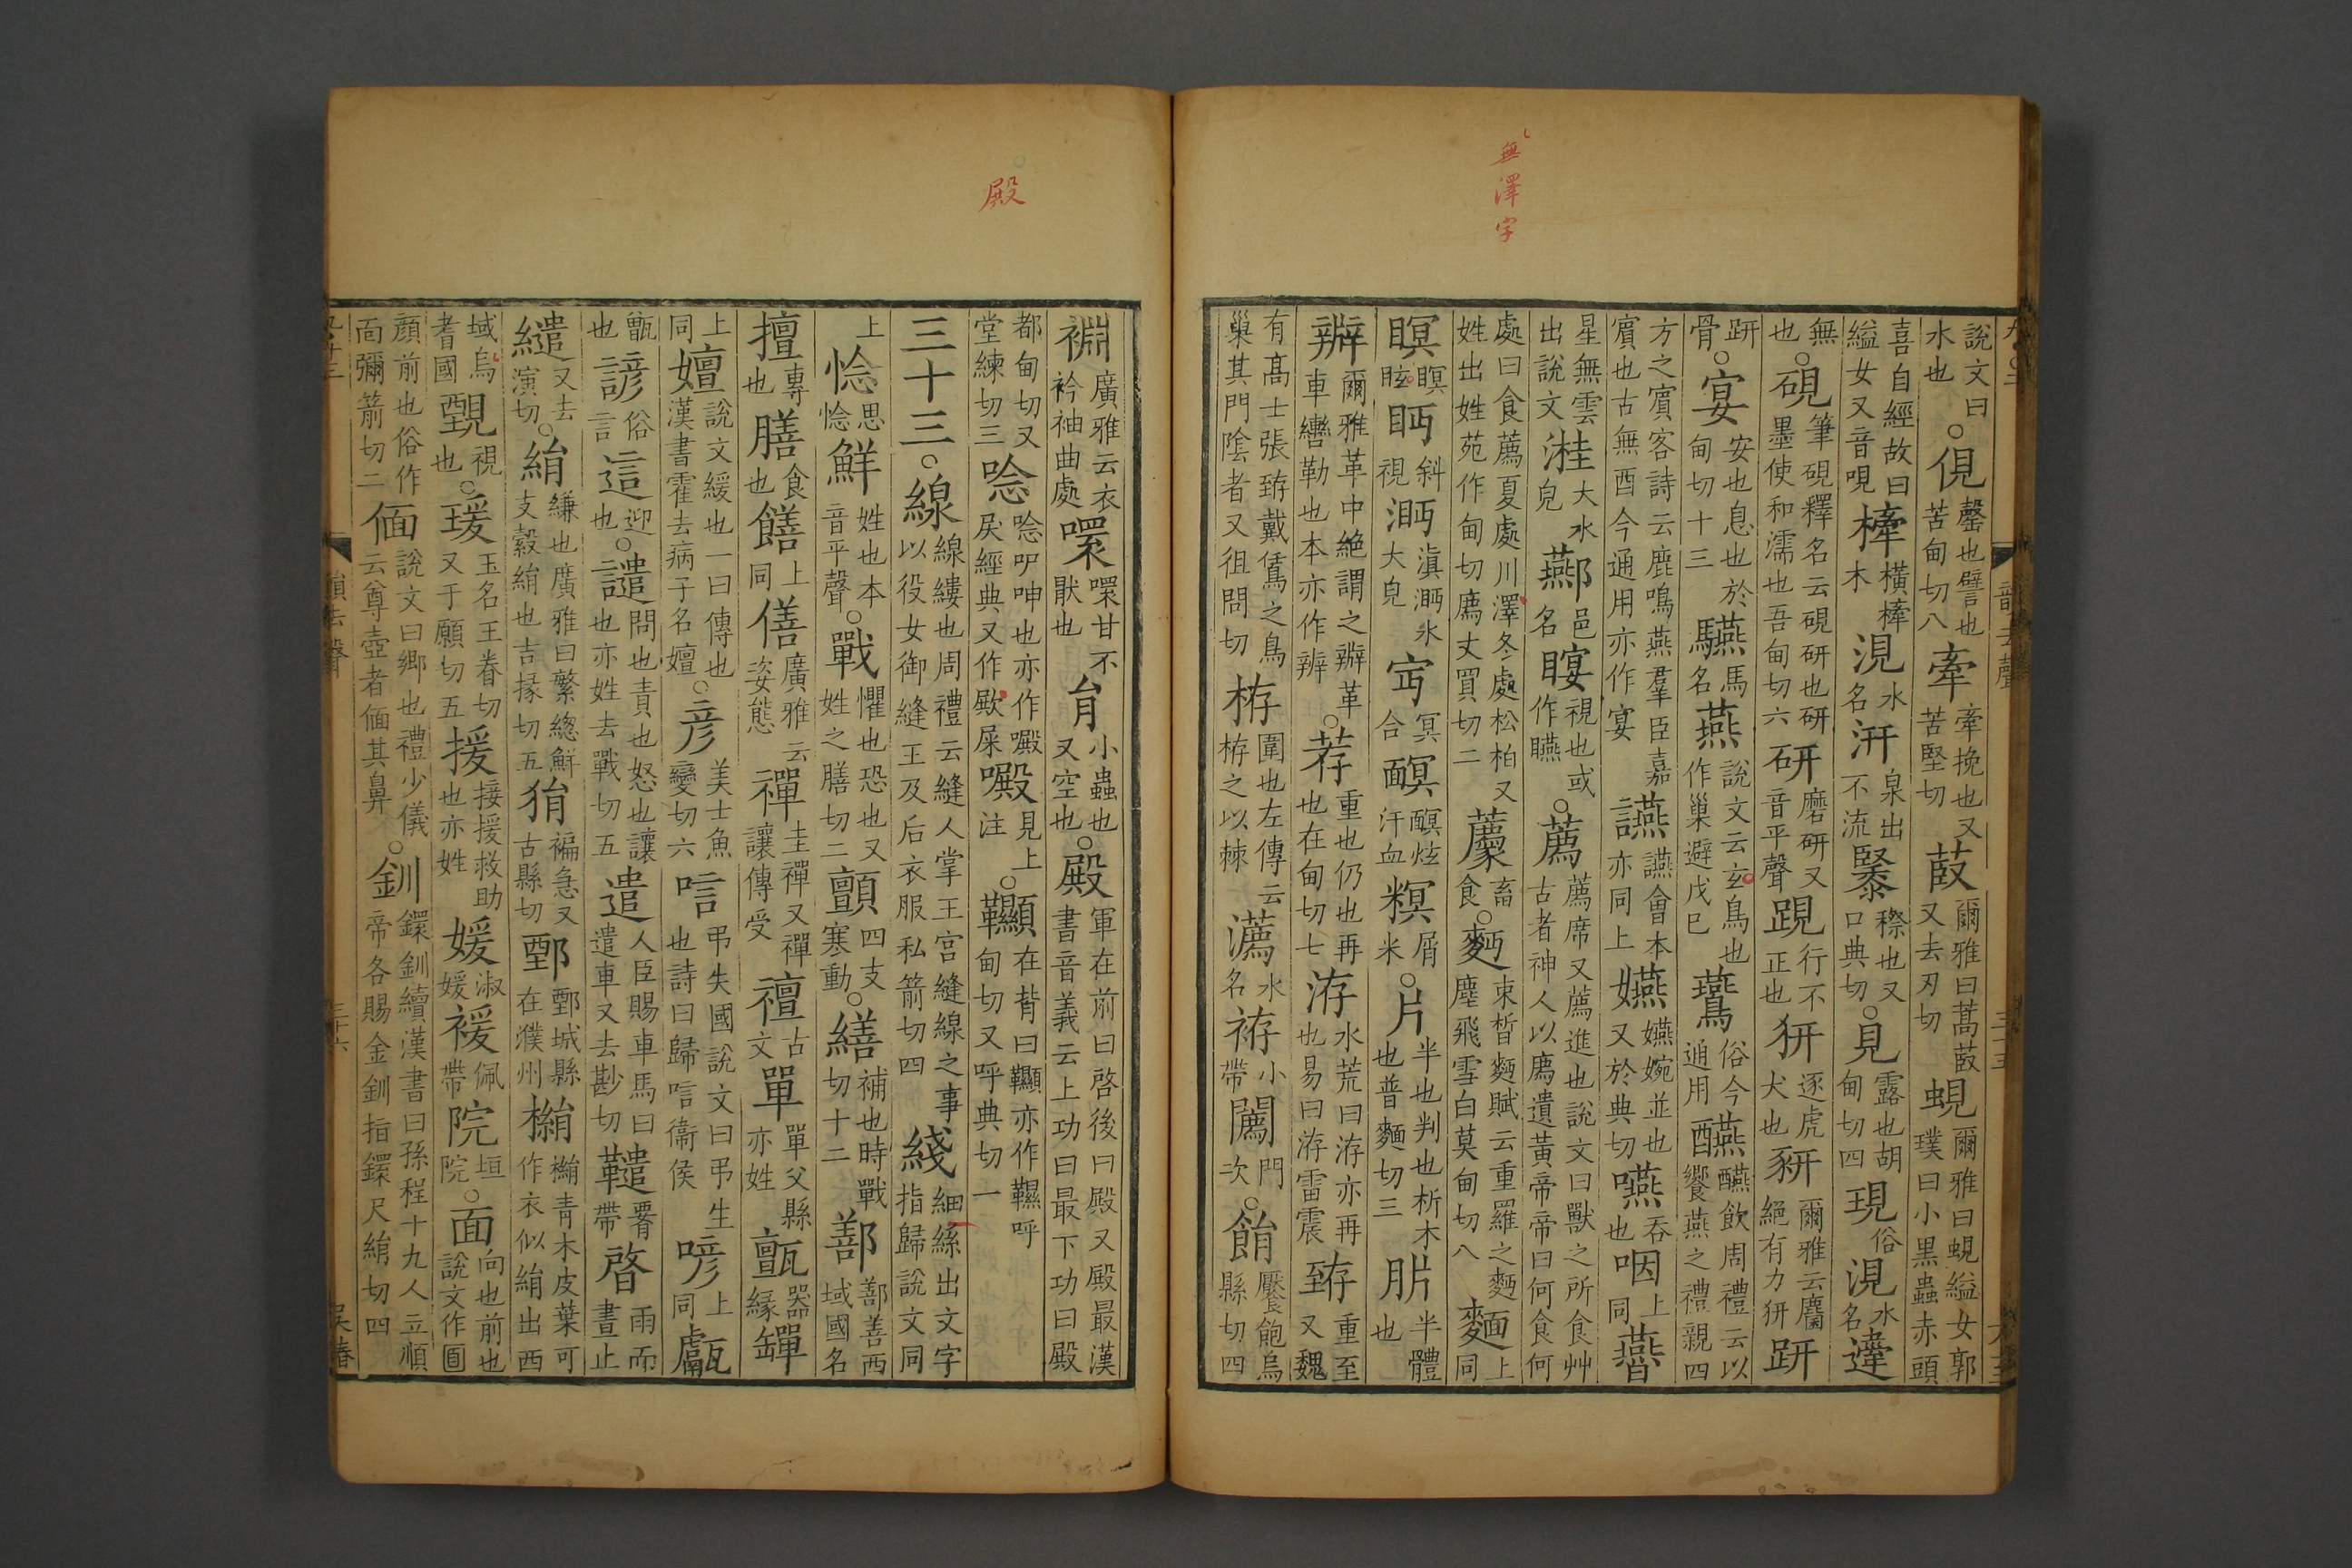 無澤字
說文曰水也○俔罄也譬也苦甸切八牽牽挽也又苦堅切菣爾雅曰蒿菣又去刃切蜆爾雅曰蜆縊女郭璞曰小黒蟲赤頭
喜自經故曰縊女又音哯㯠橫㯠木涀水名汧泉出不流䵖䅽也又口典切○見露也胡甸切四現俗涀水名䢢
無也○硯筆硯釋名云硯研也研墨使和濡也吾甸切六研磨研又音平聲趼行不正也狿逐虎犬也豣爾雅云麕絕有力豣趼
趼骨○宴安也息也於甸切十三驠馬名燕說文云玄鳥也作巢避戊巳鷰俗今通用醼醼飲周禮云以饗燕之禮親四
方之賔客詩云鹿鳴燕羣臣嘉賔也古無酉今通用亦作宴讌讌會本亦同上嬿嬿婉並也又於典切嚥吞也咽上同曣
星無雲出說文洼大水皃酀邑名瞁視也或作矊○薦薦席又薦進也說文曰獸之所食艸古者神人以廌遺黃帝帝曰何食何
處曰食薦夏處川澤冬處松柏又姓出姓苑作甸切廌丈買切二䕓畜食○麪束晳麪賦云重羅之麪塵飛雪白莫甸切八麵上同
瞑瞑眩眄斜視㴐滇㴐水大皃㝠冥合䤌䤌炫汗血䊅屑米○片半也判也析木也普麵切三胖半體也
辧爾雅革中絶謂之辧革車轡勒也本亦作辨○荐重也仍也再也在甸切七洊水荒曰洊亦再也易曰洊雷震臶重至又魏
有高士張臶戴鵀之鳥巢其門陰者又徂問切栫圍也左傳云栫之以棘瀳水名袸小帶䦯門次○䬼饜飽烏縣切四
殿
裫廣雅云衣衿袖曲處噮噮甘不猒也肙小蟲也又空也○殿軍在前曰啓後曰殿又殿最漢書音義云上功曰最下功曰殿
都甸切又堂練切三唸唸吚呻也亦作㕧經典又作㱼屎㘐見上注○韅在背曰韅亦作䩤呼甸切又呼典切一
三十三○線線縷也周禮云縫人掌王宮縫線之事以役女御縫王及后衣服私箭切四綫細絲出文字指歸說文同
上㥏思㥏鮮姓也本音平聲○戰懼也恐也又姓之膳切二顫四支寒動○繕補也時戰切十二鄯鄯善西域國名
擅專也膳食也饍上同僐廣雅云姿態禪圭禪又禪讓傳受襢古文單單父縣亦姓甗器緣䍒
上同嬗說文緩也一曰傳也漢書霍去病子名嬗○彦美士魚變切六唁弔失國說文曰弔生也詩曰歸唁衞侯喭上同甗
甑也諺俗言這迎也○譴問也責也怒也讓也亦姓去戰切五遣人臣賜車馬曰遣車又去尠切䪈䩨帶晵雨而晝止
繾又去演切○絹縑也廣雅曰繁緫鮮支縠絹也吉掾切五狷褊急又古縣切鄄鄄城縣在濮州㯞㯞青木皮葉可作衣似絹出西
域烏耆國䙾視也○瑗玉名王眷切又于願切五援接援救助也亦姓媛淑媛褑佩帶院垣院○面向也前也說文作圎
顔前也俗作靣彌箭切二偭說文曰鄉也禮少儀云尊壺者偭其鼻○釧鐶釧續漢書曰孫程十九人立順帝各賜金釧指鐶尺絹切四